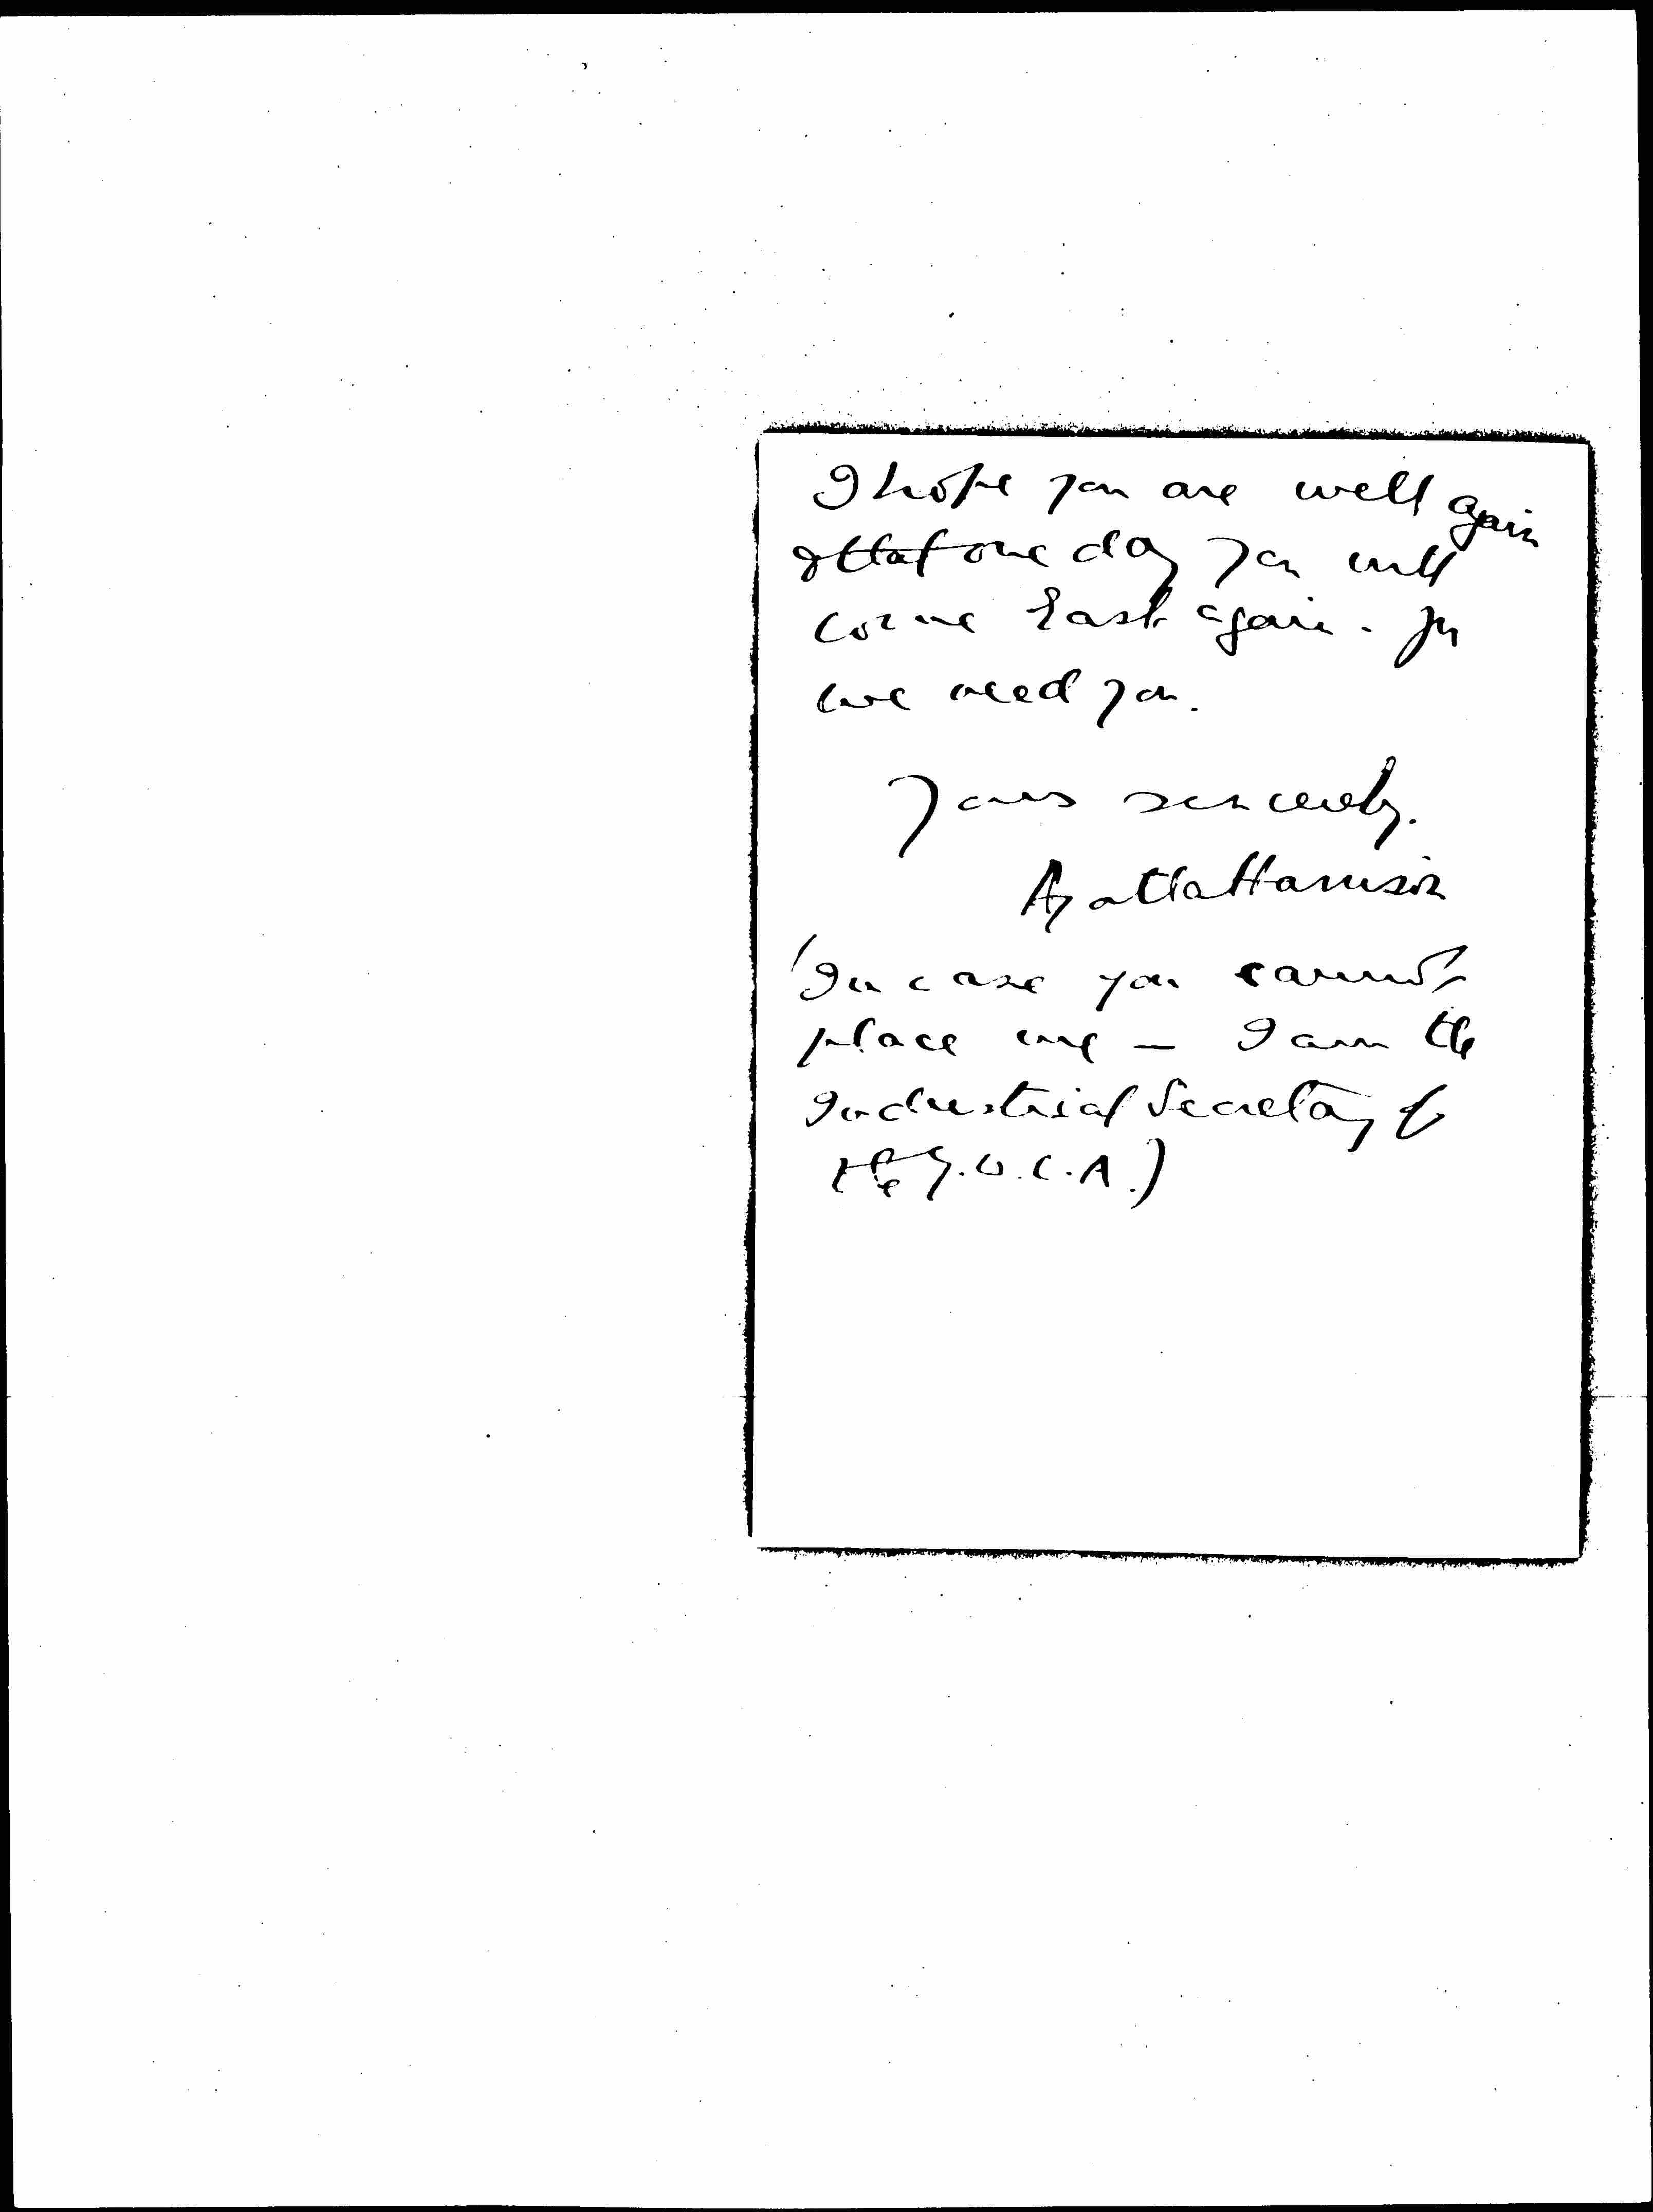 I hope you are well again
& that one day you will
come East again. for
we need you.
Yours sincerely.
Agatha Harrison
(In case you cannot
place me — I am the
Industrial Secretary of
the Y.W.C.A.)